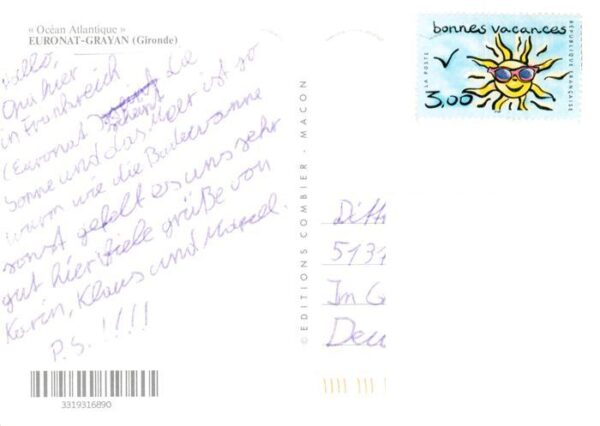 « Océan Atlantique »
EURONAT-GRAYAN (Gironde)
Hallo,
Ihr hier
in Frankreich
(Euronat) scheint die
Sonne und das Meer ist so
warm wie die Badewanne
sonst gefällt es uns sehr
gut hier viele grüße von
Karin, Klaus und Marcel.
P.S. !!!!
3319316890
© EDITIONS COMBIER - MACON
bonnes vacances
LA POSTE
3,00
RÉPUBLIQUE FRANÇAISE
Ditt
5131
In G
Deu